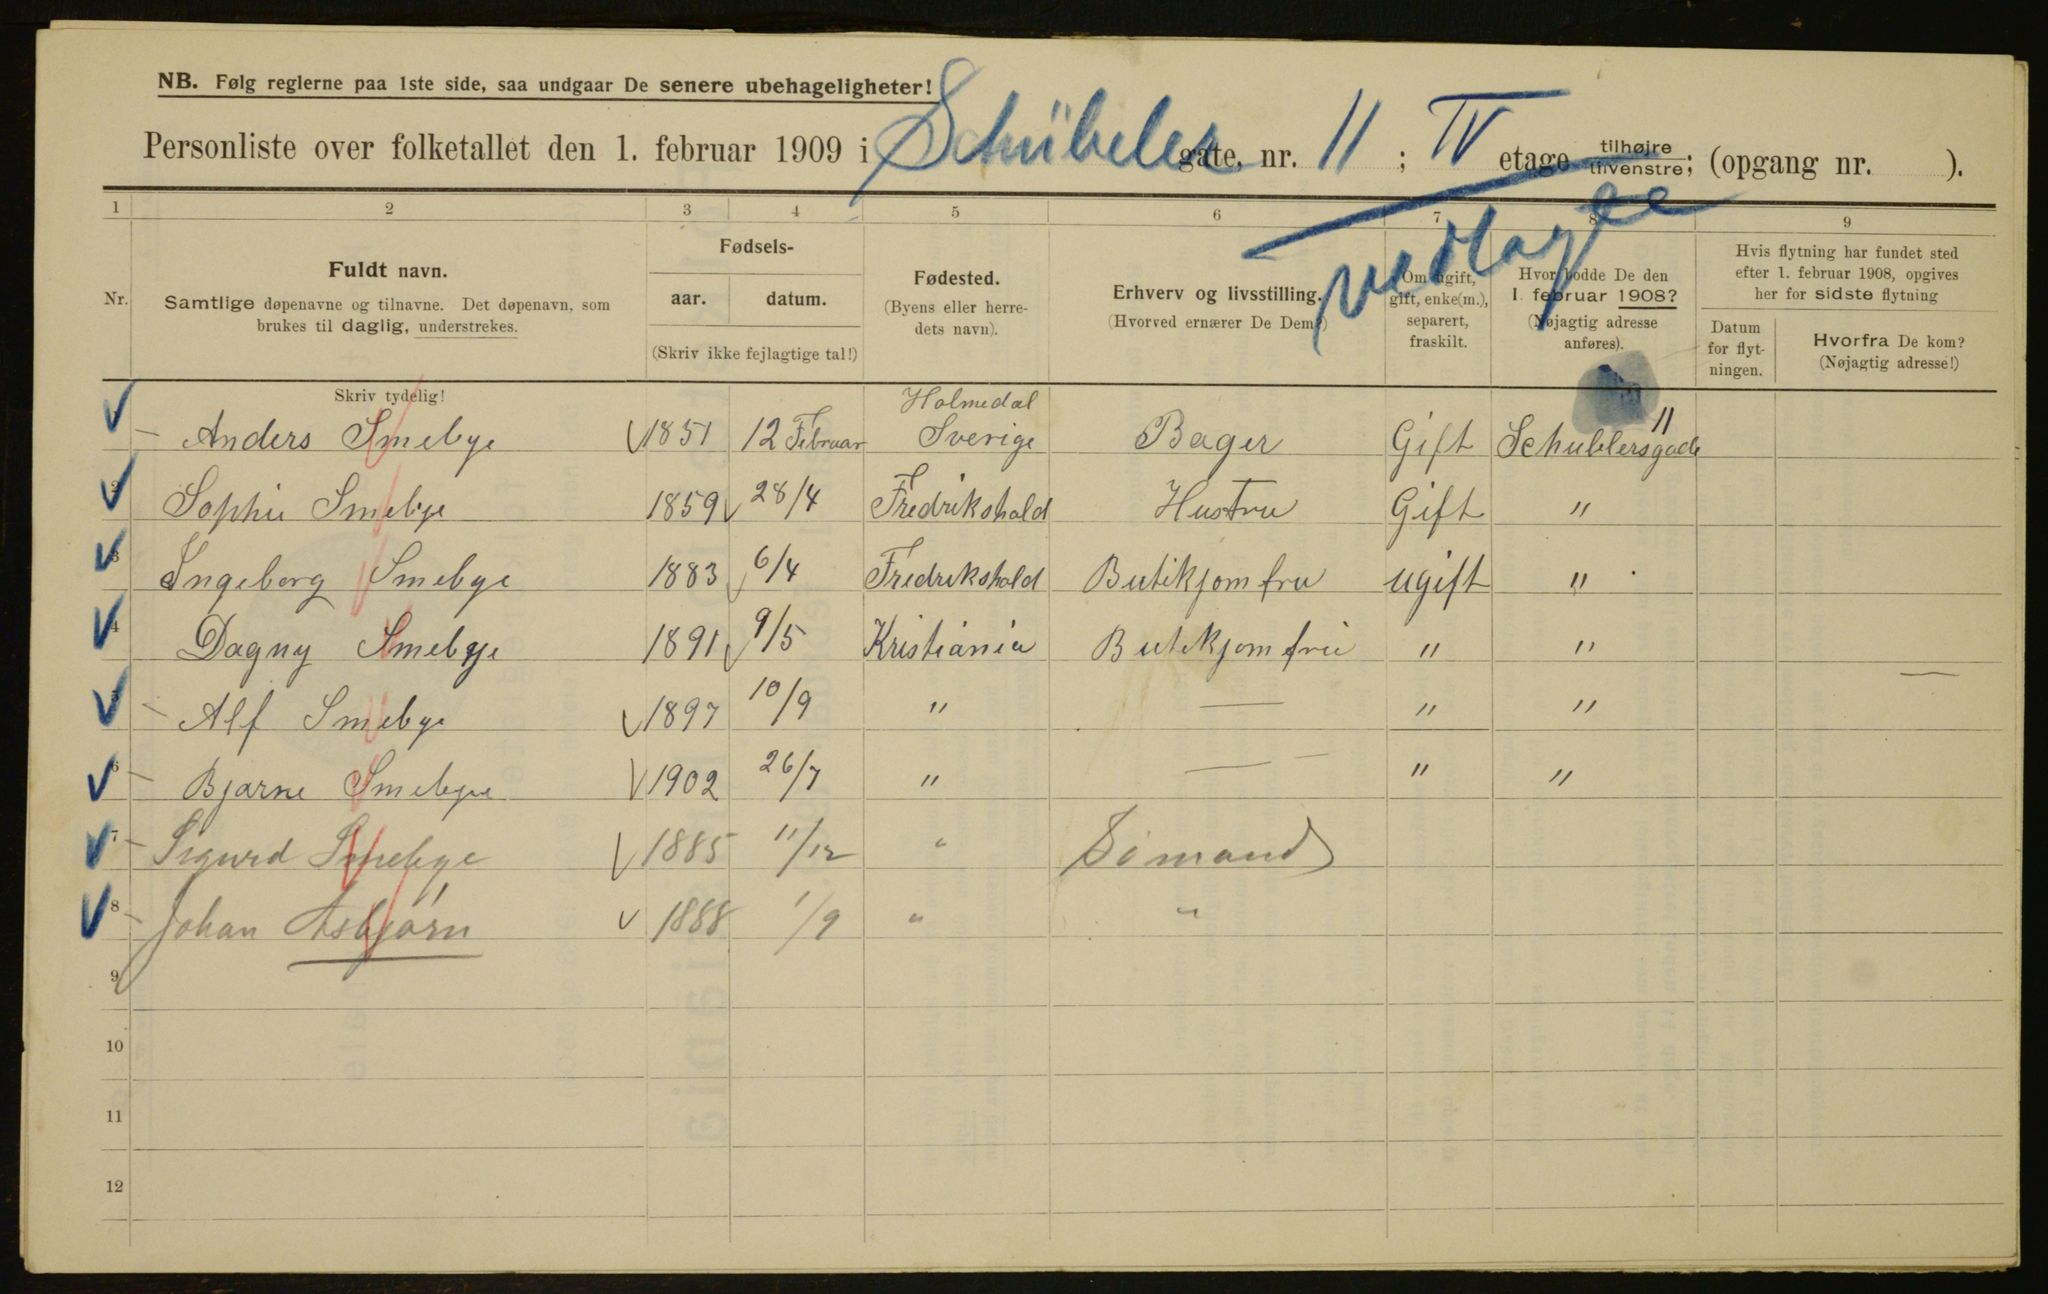 NB. Følg reglerne paa 1ste side, saa undgaar De senere ubehageligheter!
Personliste over folketallet den 1. februar 1909 i Schübeler gate, nr. 11 ; IV etage tilhøjre tilvenstre; (opgang nr. ).
vedlagte
1 2 3 4 5 6 7 8 9
Nr.
Fuldt navn.
Samtlige døpenavne og tilnavne. Det døpenavn, som
brukes til daglig, understrekes.
Fødsels-
aar. datum.
(Skriv ikke fejlagtige tal!)
Fødested.
(Byens eller herre-
dets navn).
Erhverv og livsstilling.
(Hvorved ernærer De Dem?)
Om ugift,
gift, enke(m.),
separert,
fraskilt.
Hvor bodde De den
1. februar 1908?
(Nøjagtig adresse
anføres).
Hvis flytning har fundet sted
efter 1. februar 1908, opgives
her for sidste flytning
Datum
for flyt-
ningen.
Hvorfra De kom?
(Nøjagtig adresse!)
Skriv tydelig!
Holmedal
1 Anders Smebye 1851 12 Februar Sverige Bager Gift Schublersgade 11
2 Sophie Smebye 1859 28/4 Fredrikshald Hustru Gift "
3 Ingeborg Smebye 1883 6/4 Fredrikshald Butikjomfru ugift "
4 Dagny Smebye 1891 9/5 Kristiania Butikjomfru " "
5 Alf Smebye 1897 10/9 " — " "
6 Bjarne Smebye 1902 26/7 " — " "
7 Sigurd Smebye 1885 11/12 " Sømand
8 Johan Asbjørn 1888 1/9 " "
9
10
11
12